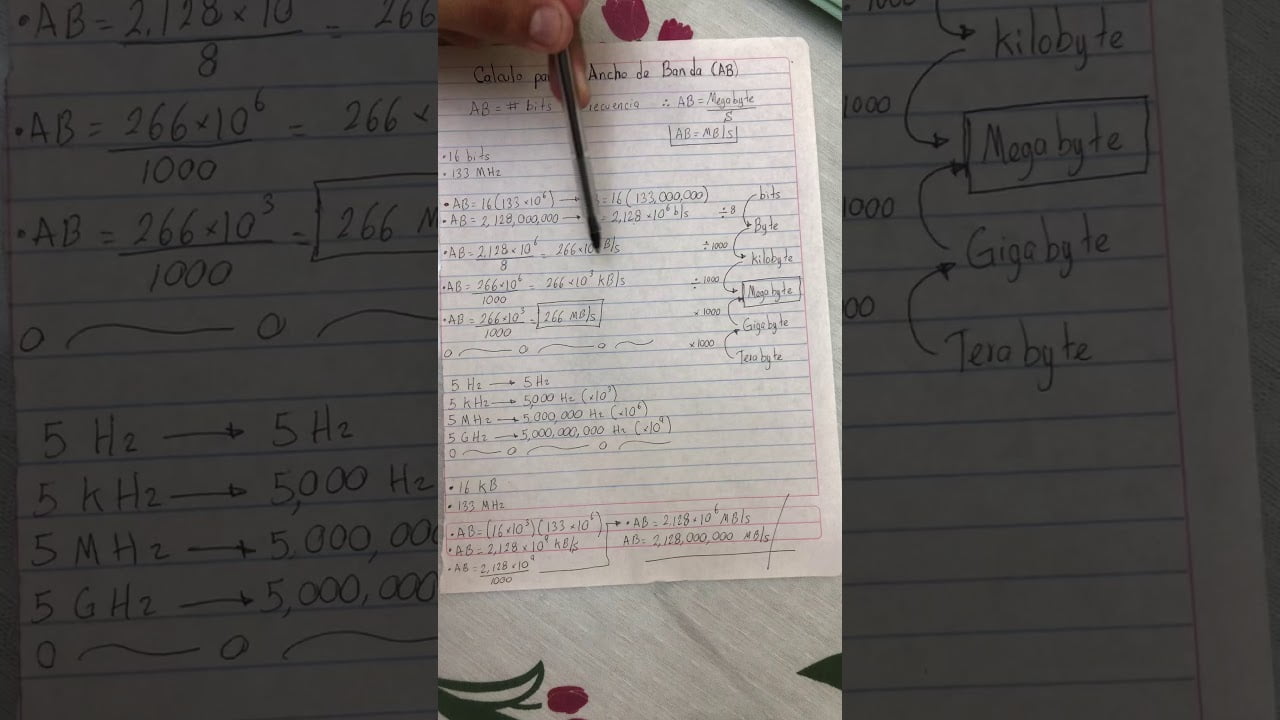 Calculo Ancho de Banda (AB)
AB = # bits ecuencia ∴ AB = Megabyte / s
AB = MB/s
• 16 bits
• 133 MHz
• AB = 16(133 × 10^6) → = 16(133,000,000)
• AB = 2,128,000,000 → = 2,128 × 10^6 b/s
• AB = 2,128 × 10^6 / 8 = 266 × 10 B/s
• AB = 266 × 10^6 / 1000 = 266 × 10^3 KB/s
• AB = 266 × 10^3 / 1000 = 266 MB/s
bits
÷ 8
Byte
÷ 1000
kilobyte
÷ 1000
Megabyte
× 1000
Gigabyte
× 1000
Terabyte
5 Hz → 5 Hz
5 KHz → 5,000 Hz (×10^3)
5 MHz → 5,000,000 Hz (×10^6)
5 GHz → 5,000,000,000 Hz (×10^9)
• 16 KB
• 133 MHz
• AB = (16×10^3)(133×10^6)
• AB = 2,128 × 10^9 KB/s
• AB = 2,128 × 10^9 / 1000
• AB = 2,128 × 10^6 MB/s
AB = 2,128,000,000 MB/s
• AB = 2,128 × 10 / 8 = 266
• AB = 266 × 10^6 / 1000 = 266 ×
• AB = 266 × 10^3 / 1000 = 266 M
5 Hz → 5 Hz
5 KHz → 5,000 Hz
5 MHz → 5,000,00
5 GHz → 5,000,000
1000
kilobyte
1000
Megabyte
1000
Gigabyte
00
Terabyte